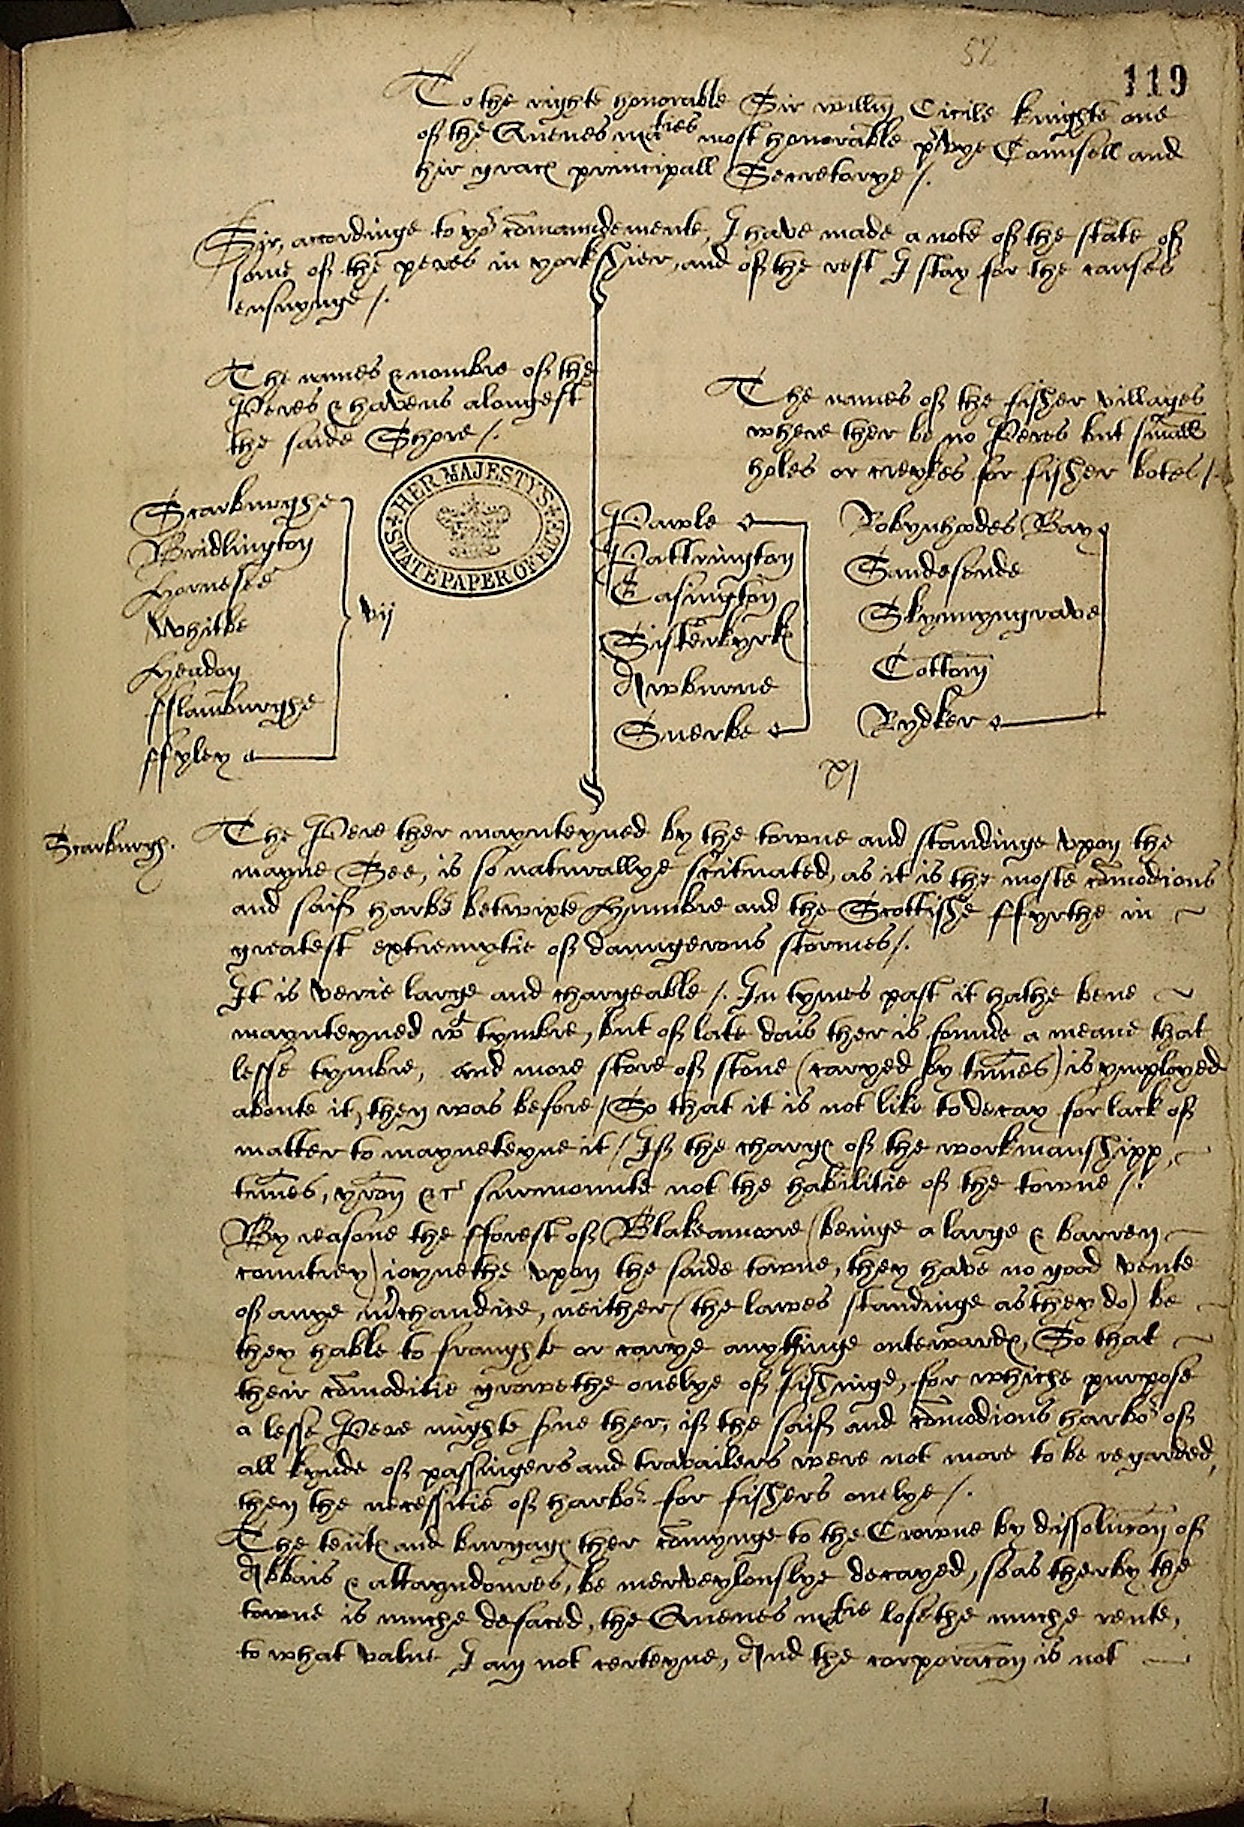 52
119
To the righte honorable Sir willm Cicile knighte one
of the Quenes maties most honorable pryvye Counsell and
hir grac principall Secretarye /.
Sir, accordinge to yor comaundemente, I have made a note of the state of
some of the peres in yorkshier, and of the rest I stay for the causes
ensuynge /.
The names & nombre of the
Peres & havens alongest
the saide Shore /.
The names of the fisher villages
where ther be no Peres but small
holes or creykes for fisher botes /.
HER MAJESTY'S
STATE PAPER OFFICE
Scarburghe
Bridlington
Hornesee
Whitbe
Headon
fflamburghe
ffyley
vij
Pawle
Pattrington
Easington
Sisterkyrk
Awburne
Suerbe
Robynhoodes Bay
Sandesende
Skynnyngrave
Cottom
Rydker
xj
Scarburgh.
The Pere ther maynteyned by the towne and standinge vpon the
mayne See, is so naturallye scituated, as it is the moste comodious
and saif harbor betwixte Hymbre and the Scottishe ffyrthe in
greatest extremytie of daungerous stormes /.
It is verie large and chargeable /. In tymes past it hathe bene
maynteyned wt tymbre, but of late dais ther is founde a meane that
lesse tymbre, and more store of stone (caryed by tunnes) is ymployed
aboute it, then was before / So that it is not like to decay for lack of
matter to maynteyne it / If the charge of the workmanshipp,
tunnes, yron &c surmounte not the habilitie of the towne /.
By reasone the fforest of Blakeamore (beinge a large & barren
countrey) ioynethe vpon the saide towne, they have no good vente
of anye mrchandice, neither (the lawes standinge as they do) be
they hable to fraughte or carye anythinge outeward, So that
their comoditie growethe onelye of fishinge, for whiche purpose
a lesse Pere mighte srve ther, if the saif and comodious harbor of
all kynde of passingers and travailers were not more to be regarded,
then the necessitie of harbor for fishers onelye /.
The tents and burgages ther comynge to the Crowne by dissolucon of
Abbais & attayndoures, be merveylouslye decayed, so as therby the
towne is muche defaced, the Quenes matie losethe muche rente,
to what value I am not certeyne, And the corporacon is not